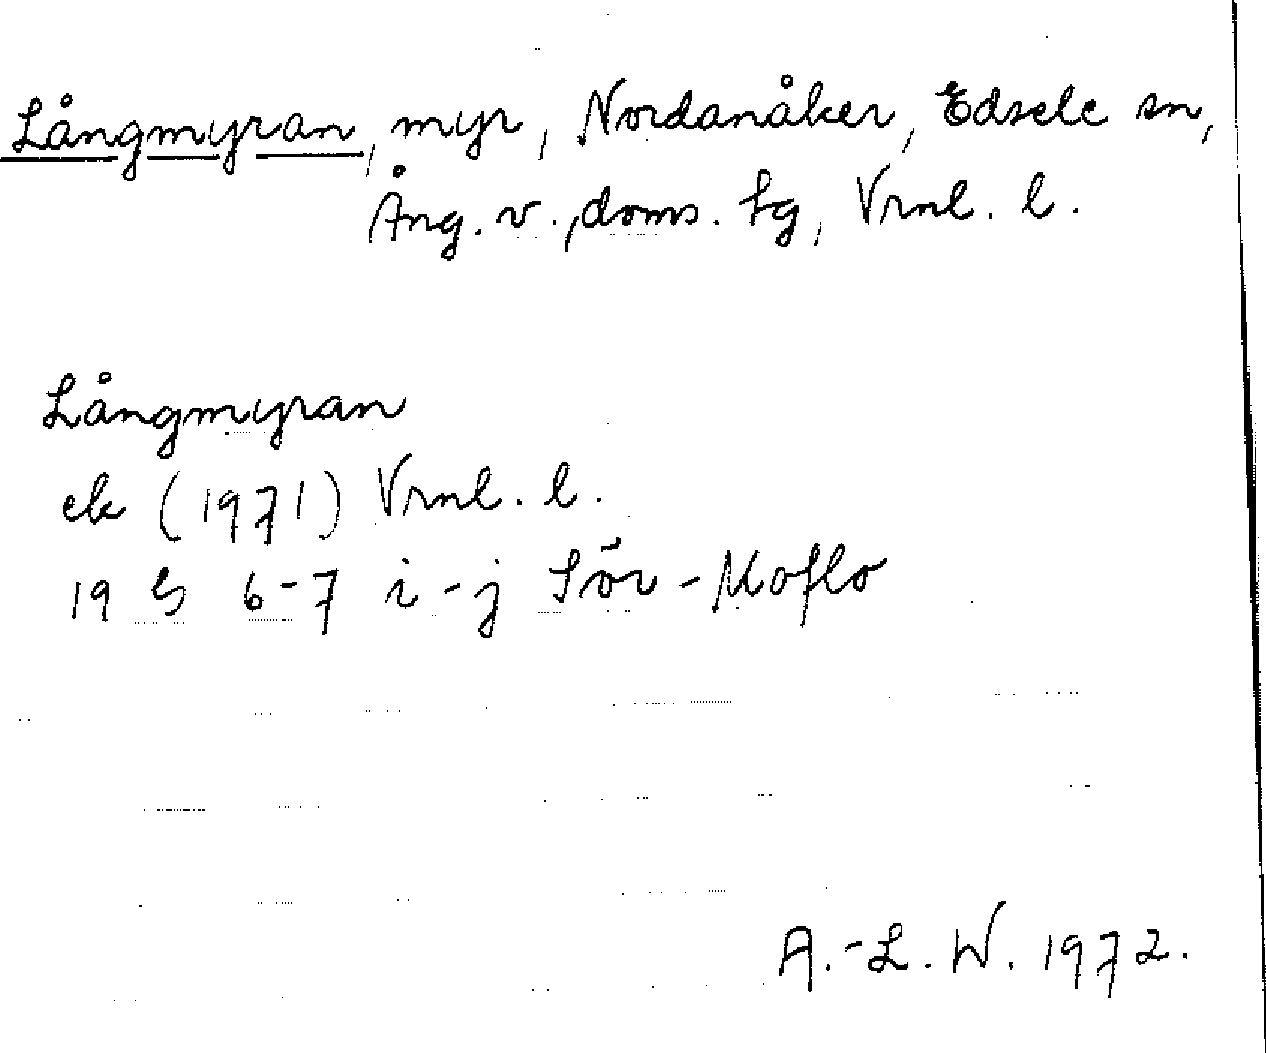 Långmyran, myr, Nordanåker, Edsele sn,
Ång. v., doms. sg, Vrnl. l.
Långmyran
ek (1971) Vrnl. l.
19 G 6-7 i-j Sör-Moflo
A.-L. W. 1972.